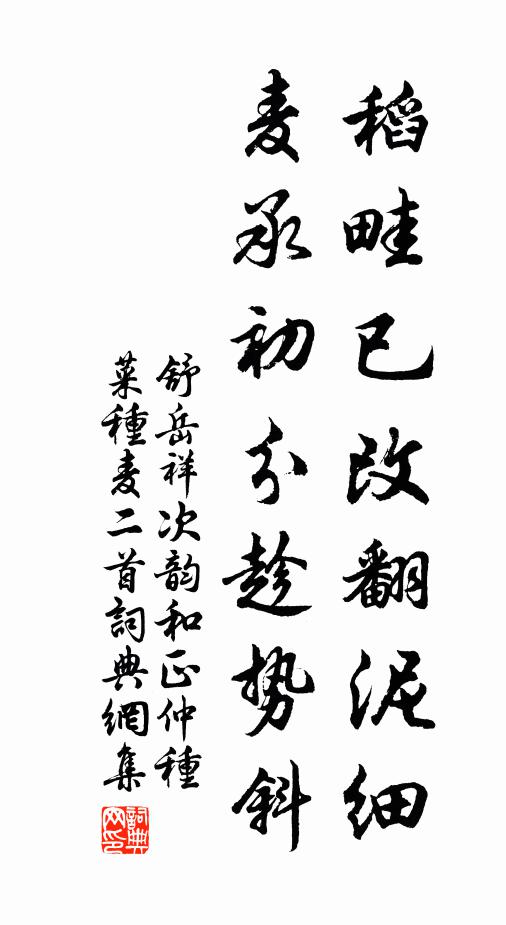 稻畦已改翻泥细
麦承初分趁势斜
舒岳祥次韵和正仲種
菜種麦二首詞典網集
詞典
网印